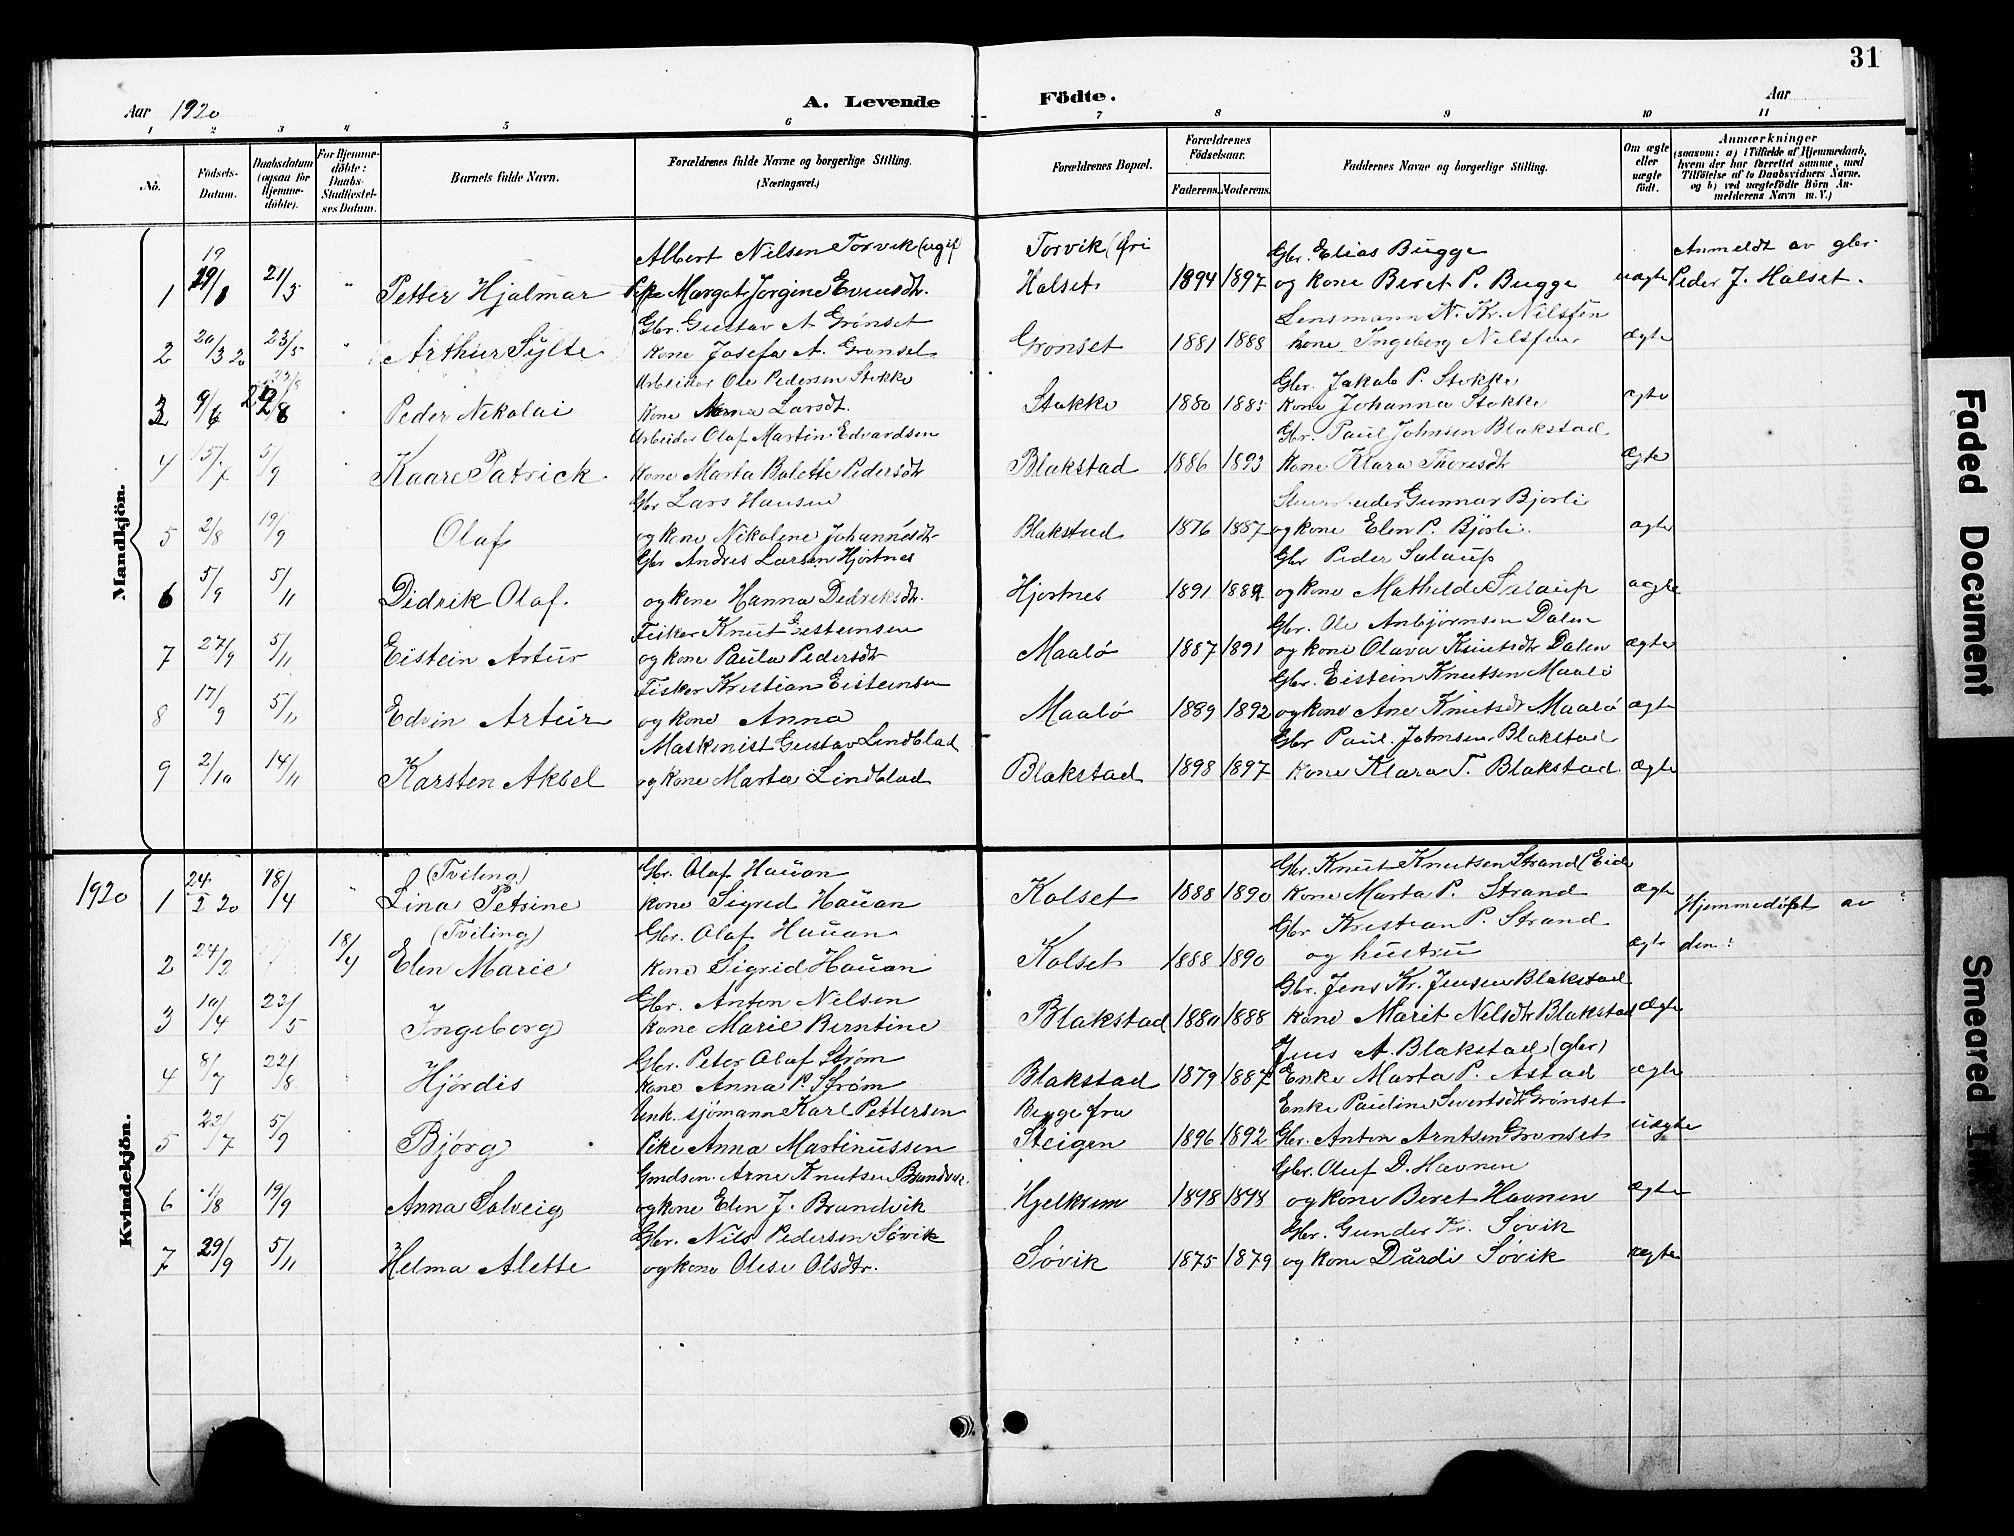 31
Aar 1920 A. Levende Födte. Aar
1 2 3 4 5 6 7 8 9 10 11
No.
Födsels-
Datum.
Daabsdatum
(ogsaa för
Hjemme-
döbte).
For Hjemme-
döbte:
Daabs-
Stadfæstel-
ses Datum.
Barnets fulde Navn.
Forældrenes fulde Navne og borgerlige Stilling.
(Næringsvei.)
Forældrenes Bopæl.
Forældrenes
Fødselsaar.
Faderens. Moderens.
Faddernes Navne og borgerlige Stilling.
Om ægte
eller
uægte
födt.
Anmærkninger
(saasom: a) i Tilfælde af Hjemmedaab,
hvem der har forrettet samme, med
Tilföielse af to Daabsvidners Navne,
og b) ved uægtefödte Börn An-
melderens Navn m. V.)
Mandkjön.
19 Albert Nilsen Torvik (ugif) Torvik (Øri Gbr. Elias Bugge Anmeldt av gbr.
1 21/3 " Petter Hjalmar Pike Margot Jorgine Evensdtr. Halset 1894 1897 og kone Beret P. Bugge uægte Peder J. Halset.
Gbr. Gustav A. Grønset Lensmann N. Kr. Nilssen
2 20/3 20 23/5 " Arthur Sylte kone Josefa A. Grønset Grønset 1881 1888 kone Ingeborg Nilssen ægte
Arbeider Ole Pedersen Stokke Gbr. Jakob P. Stokke
3 9/6 Peder Nikolai kone Anna Larsdt. Stokke 1880 1885 kone Johanna Stokke ægte
Arbeider Olaf Martin Edvardsen Gbr. Paul Johnsen Blakstad
4 15/7 5/9 Kaare Patrick kone Marta Balette Pedersdtr Blakstad 1886 1893 kone Klara Thoresdtr ægte
Gbr Lars Hansen Gunnar Bjorli
5 2/8 19/9 Olaf og kone Nikoline Johannesdtr Blakstad 1876 1887 og kone Elen P. Bjørli. ægte
Gbr Andreas Larsen Hjortnes Gbr Peder Salaup
6 5/9 5/11 Didrik Olaf. og kone Hanna Dedriksdtr. Hjortnes 1891 1889 og kone Mathilde Salaup ægte
Fisker Knut Eisteinsen Gbr. Ole Anbjørnsen Dalen
7 27/9 5/11 Eistein Artur og kone Paula Pedersdtr Maalø 1887 1891 og kone Olava Knutsdtr Dalen ægte
Fisker Kristian Eisteinsen Gbr. Eistein Knutsen Maalø
8 17/9 5/11 Edvin Artur og kone Anna Maalø 1889 1892 og kone Ane Knutsdtr Maalø ægte
Maskinist Gustav Lindblad Gbr Paul Johnsen Blakstad
9 2/10 14/11 Karsten Aksel og kone Marta Lindblad Blakstad 1898 1897 kone Klara T. Blakstad ægte
Kvindekjön.
(Tviling) Gbr. Olaf Hauan Gbr. Knut Knutsen Strand (Eide
1920 1 24/2 20 18/4 " Lina Petrine kone Sigrid Hauan Kolset 1888 1890 kone Marta P. Strand ægte Hjemmedöpt av
(Tviling) Gbr. Olaf Hauan Gbr Kristian P. Strand
2 24/2 18/4 Elen Marie kone Sigrid Hauan Kolset 1888 1890 og hustru ægte den:
Gbr. Anton Nilsen Gbr. Jens Kr. Jensen Blakstad
3 10/4 23/5 Ingeborg kone Marie Berntine Blakstad 1880 1888 kone Marit Nilsdtr Blakstad ægte
Gbr. Peter Olaf Strøm Jens A. Blakstad (gbr)
4 8/7 22/8 Hjördis kone Anna P. Strøm Blakstad 1879 1887 Enke Marta P. Astad ægte
Unk. sjömann Karl Pettersen Begge fra Enke Pauline Sivertsdtr Grønset
5 23/7 5/9 Bjørg Pike Anna Martinussen Steigen 1896 1892 Gbr. Anton Arntsen Grønset uægte
Gmdsen. Arne Knutsen Brandvik. Gbr. Oluf D. Havnen
6 1/8 19/9 Anna Solveig og kone Elen J. Brandvik Hjelkrem 1898 1898 og kone Beret Havnen ægte
Gbr. Nils Pedersen Søvik Gbr. Gunder Kr. Søvik
7 29/9 5/11 Helma Alette og kone Olese Olsdtr. Søvik 1875 1879 og kone Dårdi Søvik ægte
Faded Document
Smeared Ink